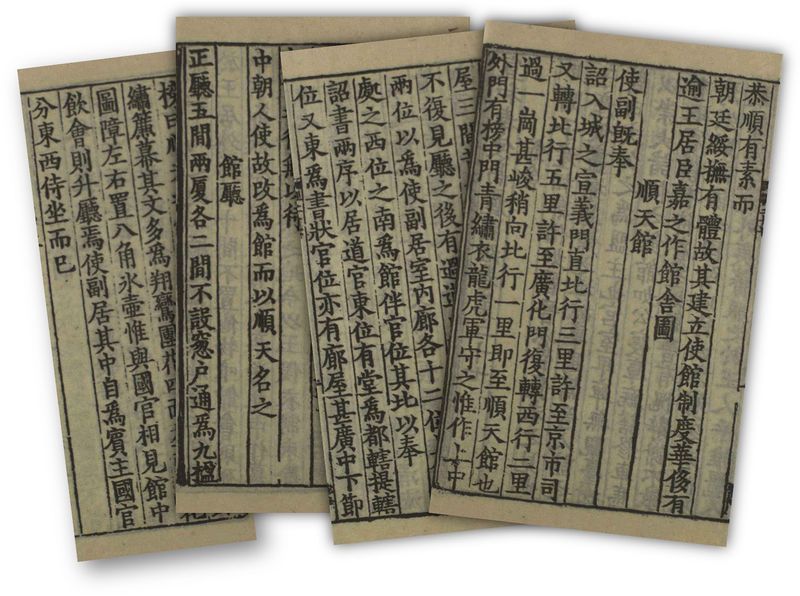 恭順有素而
朝廷綏撫有體故其建立使館制度華侈有
逾王居臣嘉之作館舍圖
順天館
使副旣奉
詔入城之宣義門直北行三里許至京市司
又轉北行五里許至廣化門復轉西行二里
過一崗甚峻稍向北行一里即至順天館也
外門有榜中門青繡衣龍虎軍守之惟作上中
屋三間
不復見廳之後有過道
兩位以爲使副居室內廊各十二位
處之西位之南爲館伴官位其北以奉
詔書兩序以居道官東位有堂爲都轄提轄
位又東爲書狀官位亦有廊屋甚廣中下節
以待
中朝人使故改爲館而以順天名之
館廳
正廳五間兩厦各二間不設窓戶通爲九楹
繡簾幕其文多爲翔鸞團花四面
圖障左右置八角氷壺惟與國官相見館中
飲會則升廳焉使副居其中自爲賓主國官
分東西侍坐而已